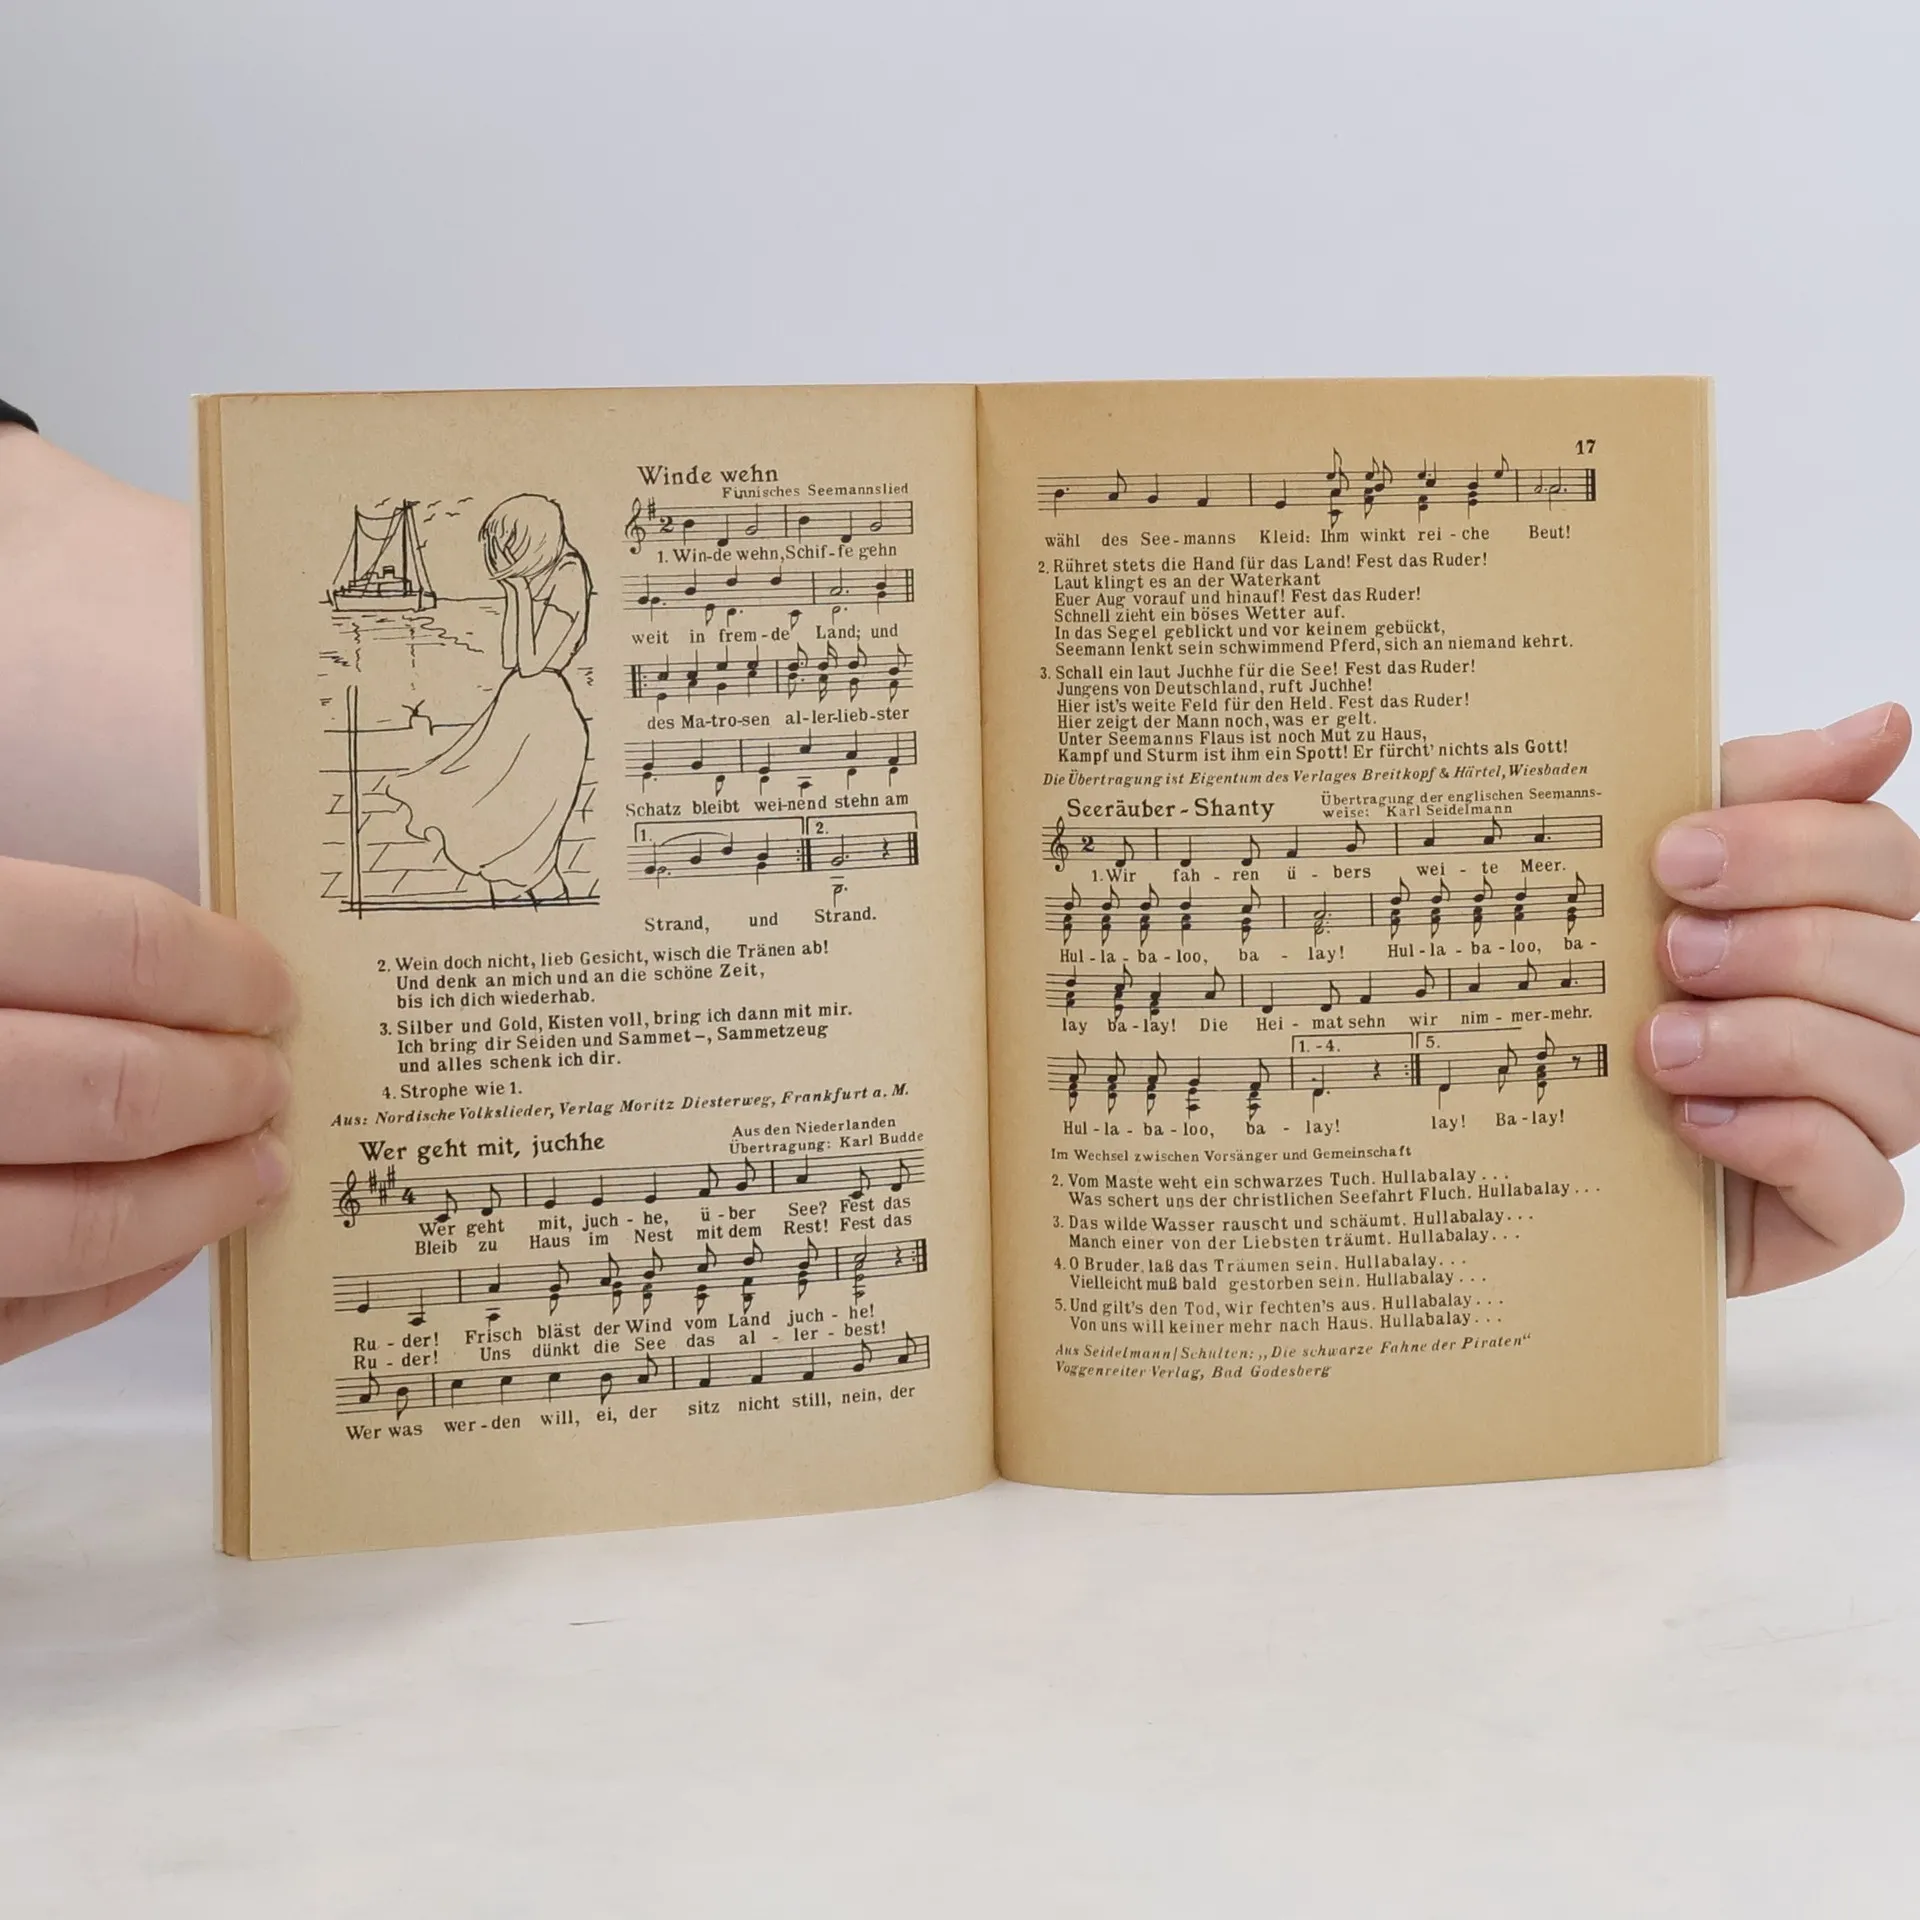 Winde wehn
Finnisches Seemannslied
2
1. Win-de wehn, Schif-fe gehn
weit in frem-de Land; und
des Ma-tro-sen al-ler-lieb-ster
Schatz bleibt wei-nend stehn am
1. 2.
Strand, und Strand.
2. Wein doch nicht, lieb Gesicht, wisch die Tränen ab!
Und denk an mich und an die schöne Zeit,
bis ich dich wiederhab.
3. Silber und Gold, Kisten voll, bring ich dann mit mir.
Ich bring dir Seiden und Sammet-, Sammetzeug
und alles schenk ich dir.
4. Strophe wie 1.
Aus: Nordische Volkslieder, Verlag Moritz Diesterweg, Frankfurt a. M.
Wer geht mit, juchhe
Aus den Niederlanden
Übertragung: Karl Budde
4
Wer geht mit, juch - he, ü - ber See? Fest das
Bleib zu Haus im Nest mit dem Rest! Fest das
Ru - der! Frisch bläst der Wind vom Land juch - he!
Ru - der! Uns dünkt die See das al - ler - best!
Wer was wer - den will, ei, der sitz nicht still, nein, der
17
wähl des See - manns Kleid: Ihm winkt rei - che Beut!
2. Rühret stets die Hand für das Land! Fest das Ruder!
Laut klingt es an der Waterkant
Euer Aug vorauf und hinauf! Fest das Ruder!
Schnell zieht ein böses Wetter auf.
In das Segel geblickt und vor keinem gebückt,
Seemann lenkt sein schwimmend Pferd, sich an niemand kehrt.
3. Schall ein laut Juchhe für die See! Fest das Ruder!
Jungens von Deutschland, ruft Juchhe!
Hier ist's weite Feld für den Held. Fest das Ruder!
Hier zeigt der Mann noch, was er gelt.
Unter Seemanns Flaus ist noch Mut zu Haus,
Kampf und Sturm ist ihm ein Spott! Er fürcht' nichts als Gott!
Die Übertragung ist Eigentum des Verlages Breitkopf & Härtel, Wiesbaden
Seeräuber - Shanty
Übertragung der englischen Seemanns-
weise: Karl Seidelmann
2
1. Wir fah - ren ü - bers wei - te Meer.
Hul - la - ba - loo, ba - lay! Hul - la - ba - loo, ba -
lay ba - lay! Die Hei - mat sehn wir nim - mer-mehr.
1. - 4. 5.
Hul - la - ba - loo, ba - lay! lay! Ba - lay!
Im Wechsel zwischen Vorsänger und Gemeinschaft
2. Vom Maste weht ein schwarzes Tuch. Hullabalay . . .
Was schert uns der christlichen Seefahrt Fluch. Hullabalay . . .
3. Das wilde Wasser rauscht und schäumt. Hullabalay . . .
Manch einer von der Liebsten träumt. Hullabalay . . .
4. O Bruder, laß das Träumen sein. Hullabalay . . .
Vielleicht muß bald gestorben sein. Hullabalay . . .
5. Und gilt's den Tod, wir fechten's aus. Hullabalay . . .
Von uns will keiner mehr nach Haus. Hullabalay . . .
Aus Seidelmann/Schulten: „Die schwarze Fahne der Piraten“
Voggenreiter Verlag, Bad Godesberg